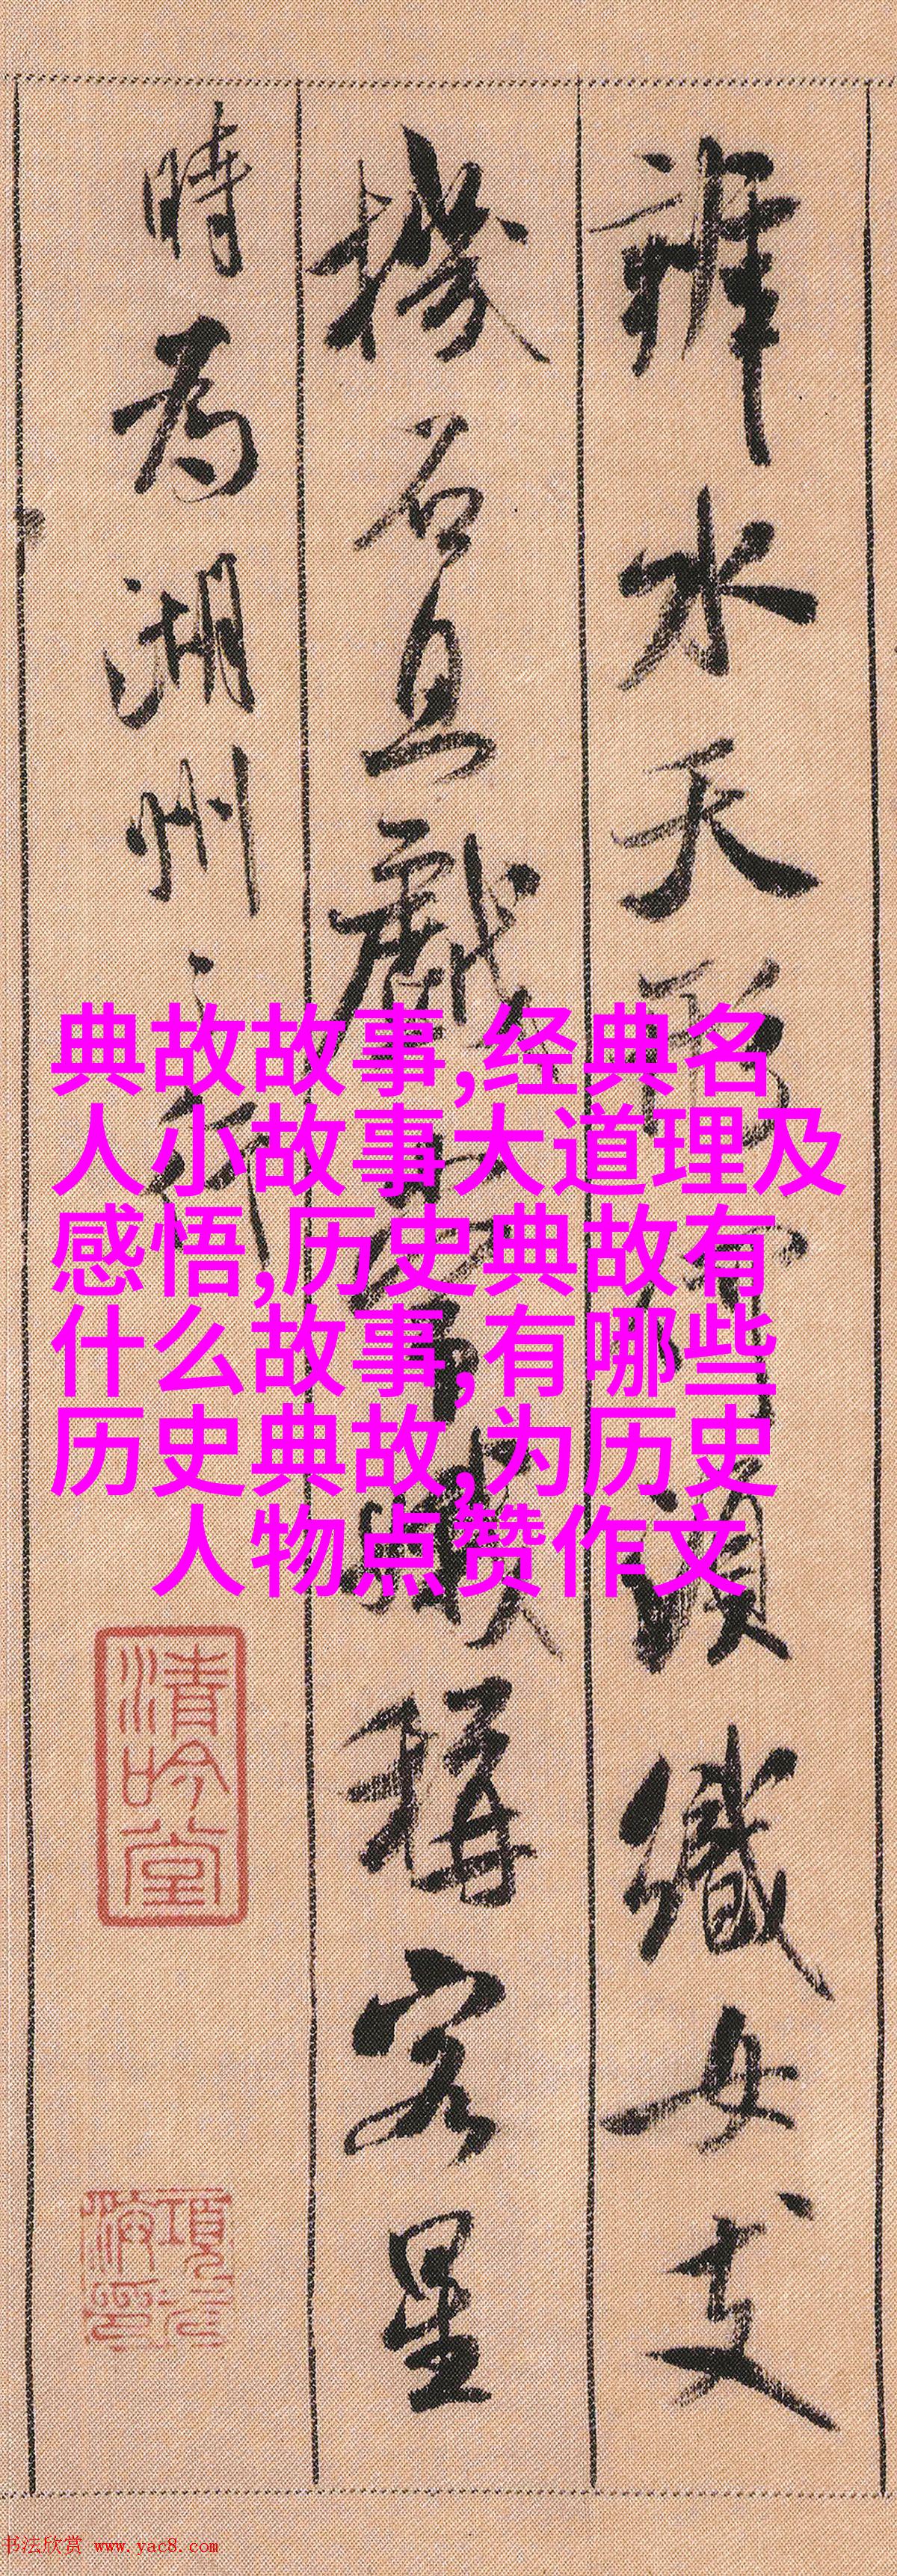 辨水天形何須織女支
機石且戲常娥稱客星
時為湖州之行
典故故事,经典名
人小故事大道理及
感悟,历史典故有
什么故事,有哪些
历史典故,为历史
人物点赞作文
清吟堂
书法欣赏 www.yac8.com